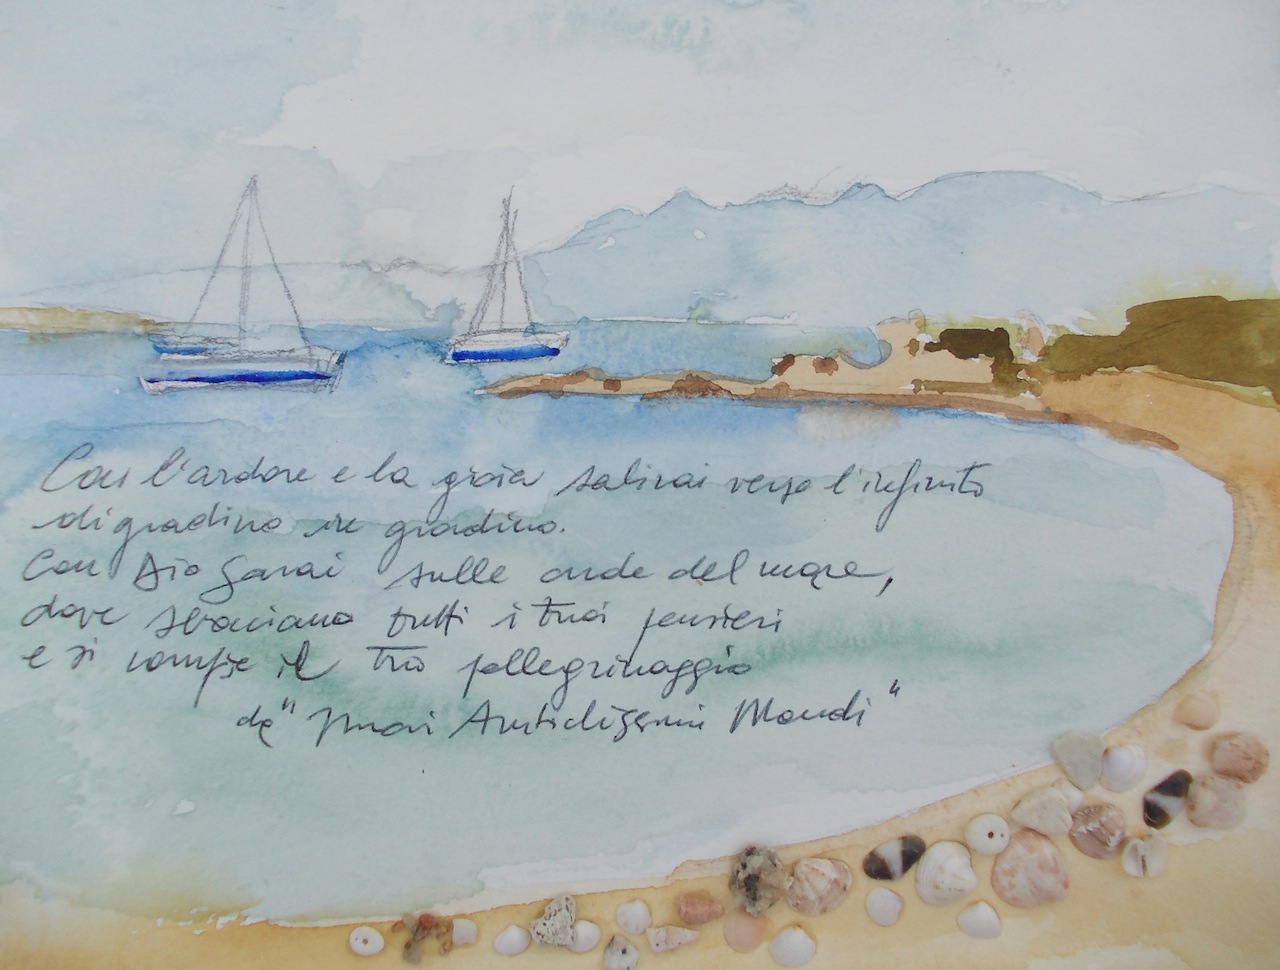 Con l'ardore e la gioia salirai verso l'infinito
di gradino in gradino.
Con Dio sarai sulle onde del mare,
dove svaniano tutti i tuoi pensieri
e si compie il tuo pellegrinaggio
da " Antichissimi Mondi"